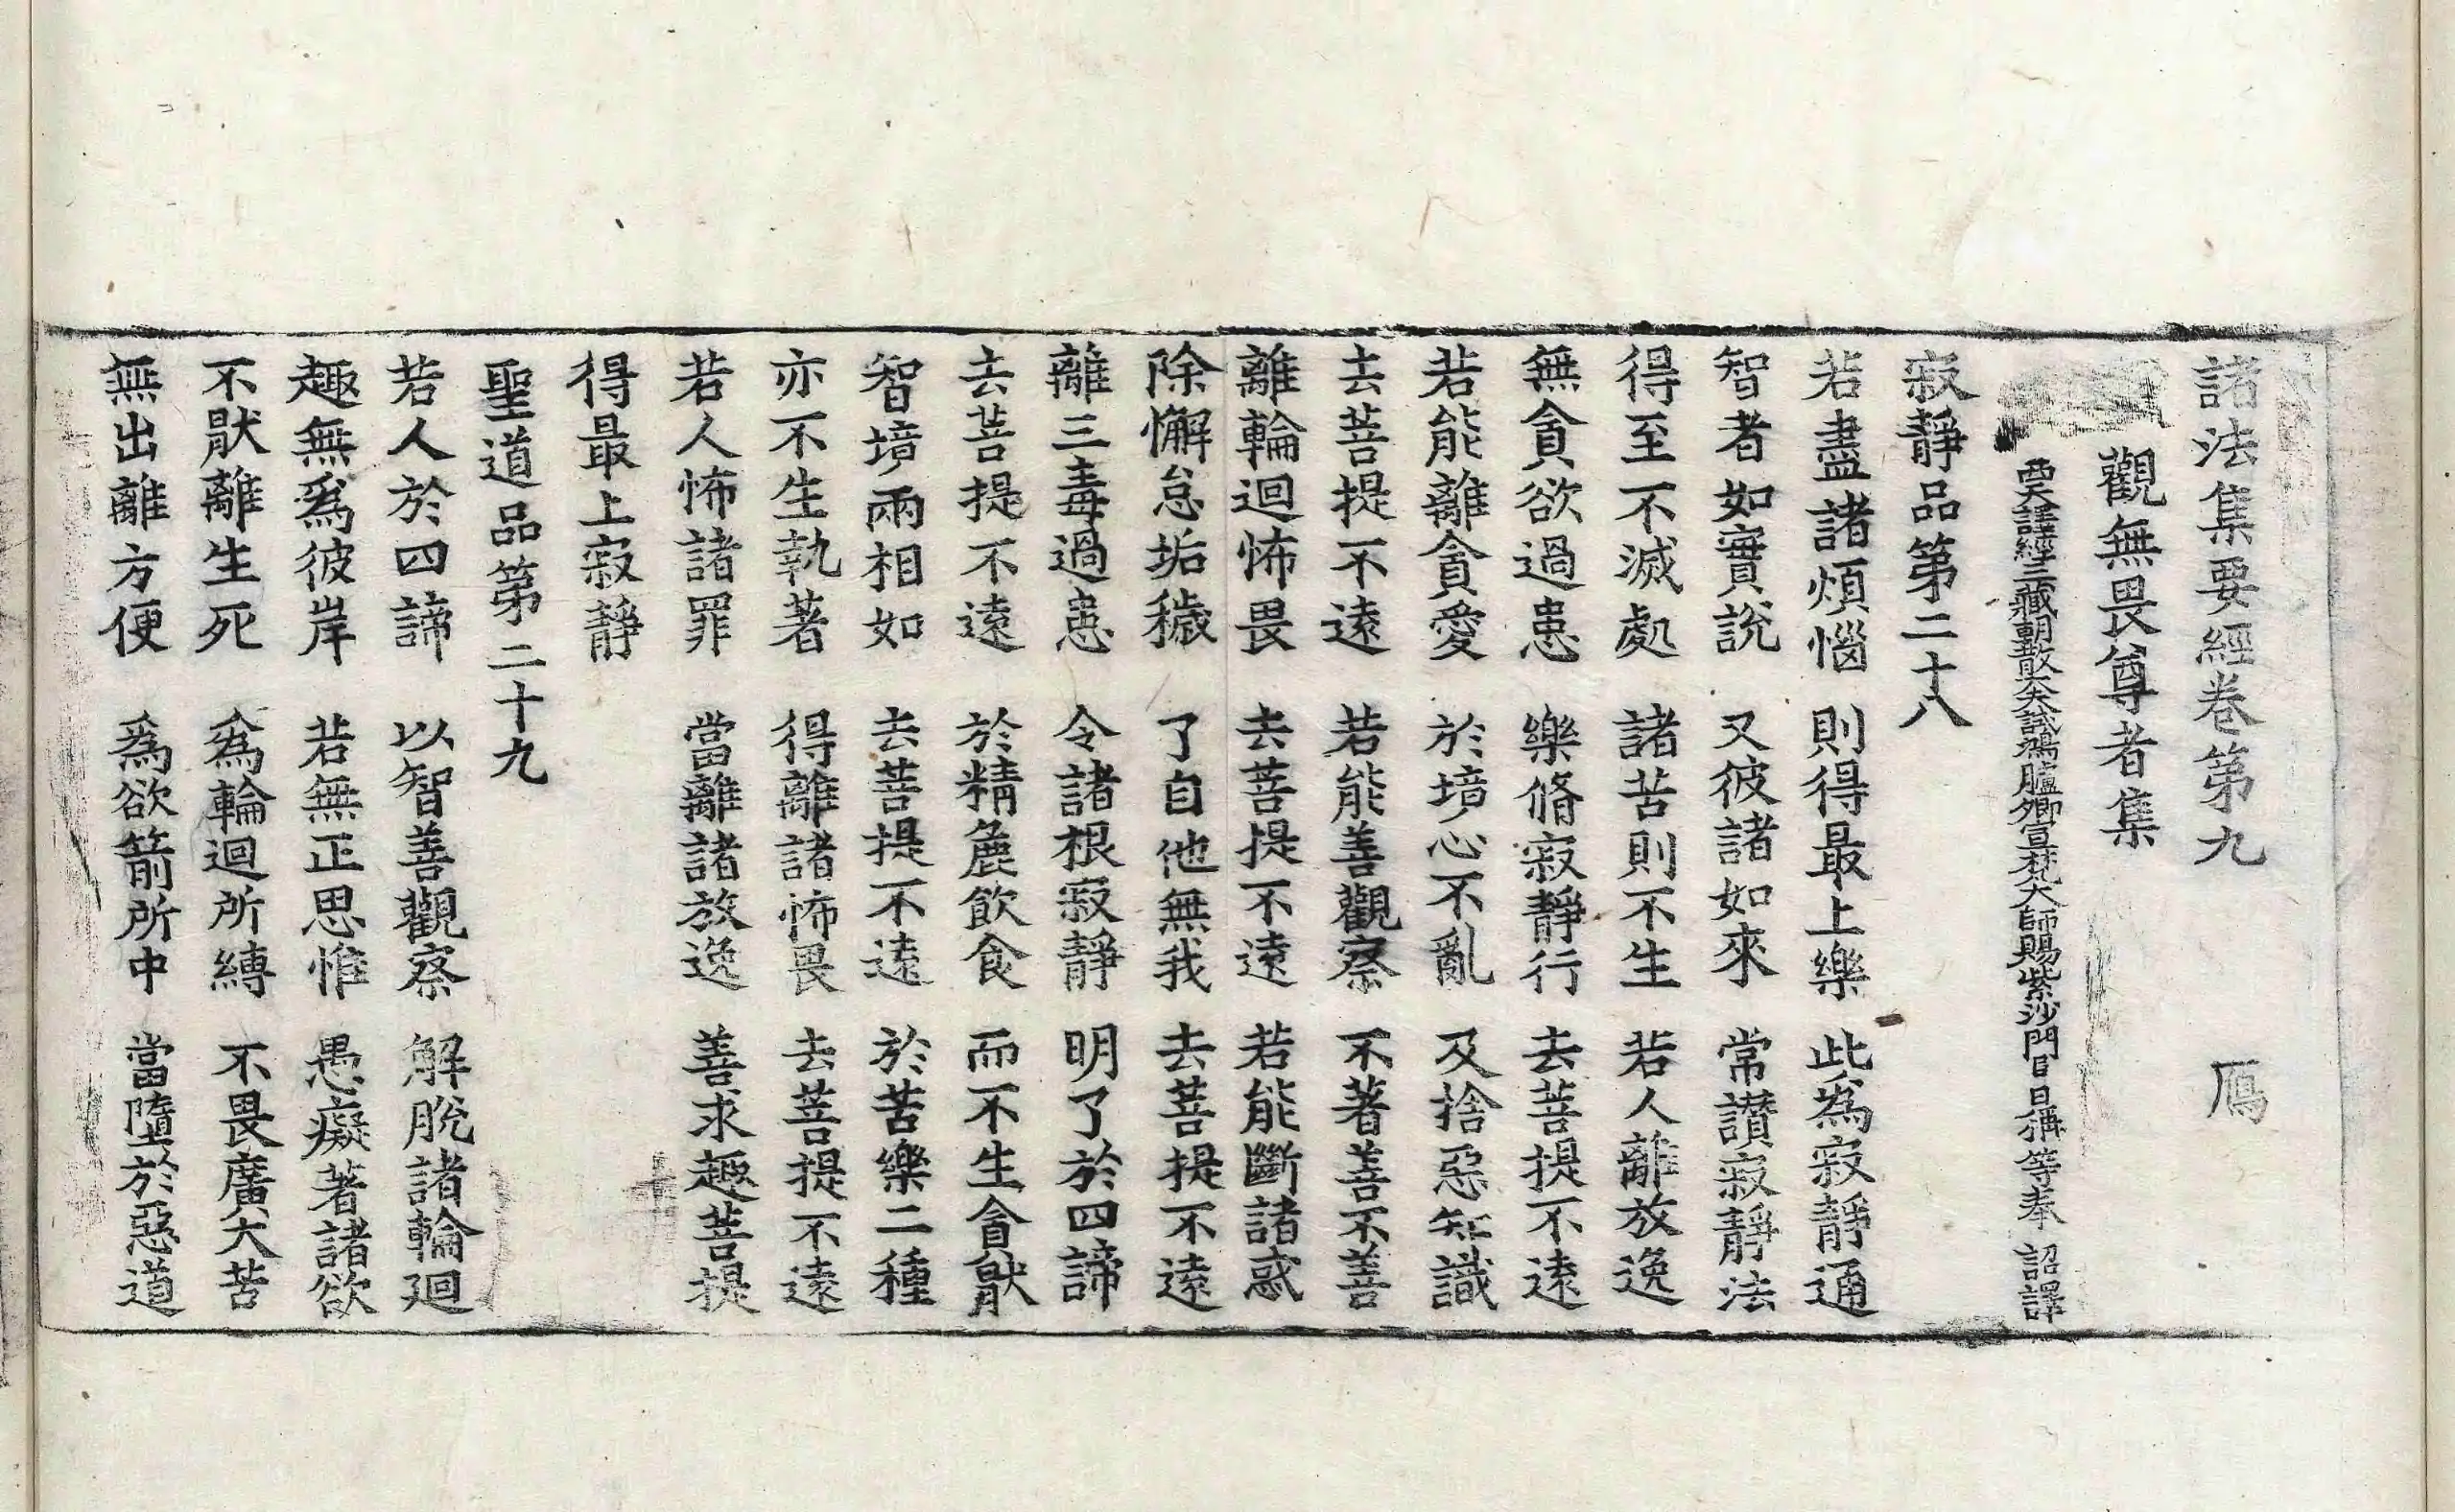 諸法集要經卷第九 鴈
觀無畏尊者集
西天譯經三藏朝散大夫試鴻臚卿宣梵大師賜紫沙門臣日稱等奉 詔譯
寂靜品第二十八
若盡諸煩惱 則得最上樂 此為寂靜通
智者如實說 又彼諸如來 常讃寂靜法
得至不滅處 諸苦則不生 若人離放逸
無貪欲過患 樂脩寂靜行 去菩提不遠
若能離貪愛 於境心不亂 及捨惡知識
去菩提不遠 若能善觀察 不著善不善
離輪迴怖畏 去菩提不遠 若能斷諸惑
除懈怠垢穢 了自他無我 去菩提不遠
離三毒過患 令諸根寂靜 明了於四諦
去菩提不遠 於精麁飲食 而不生貪猒
智境兩相如 去菩提不遠 於苦樂二種
亦不生執著 得離諸怖畏 去菩提不遠
若人怖諸罪 當離諸放逸 善求趣菩提
得最上寂靜
聖道品第二十九
若人於四諦 以智善觀察 解脫諸輪迴
趣無為彼岸 若無正思惟 愚癡著諸欲
不猒離生死 為輪迴所縛 不畏廣大苦
無出離方便 為欲箭所中 當墮於惡道